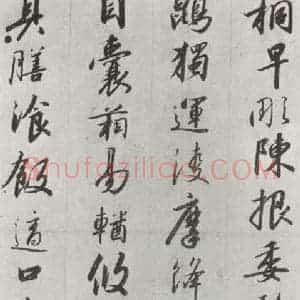 桐早彫陳根委
鵾獨運淩摩絳
目囊箱易輶攸
具膳湌飯適口
Shufaziliao.COM